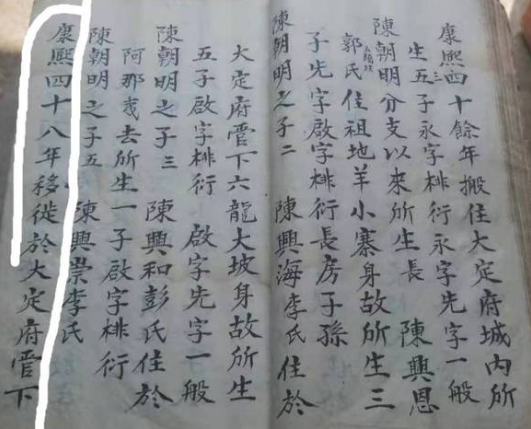 康熙四十餘年搬住大定府城內所
生五子永字桃衍永字先字一般
陳朝明分支以來所生長 陳興恩
郭氏住祖地羊小寨身故所生三
子先字啟字桃衍長房子孫
陳朝明之子二 陳興海李氏住於
大定府管下六龍大坡身故所生
五子啟字桃衍 啟字先字一般
陳朝明之子三 陳興和彭氏住於
阿那戎去所生一子啟字桃衍
陳朝明之子五 陳興崇李氏
康熙四十八年移徙於大定府管下